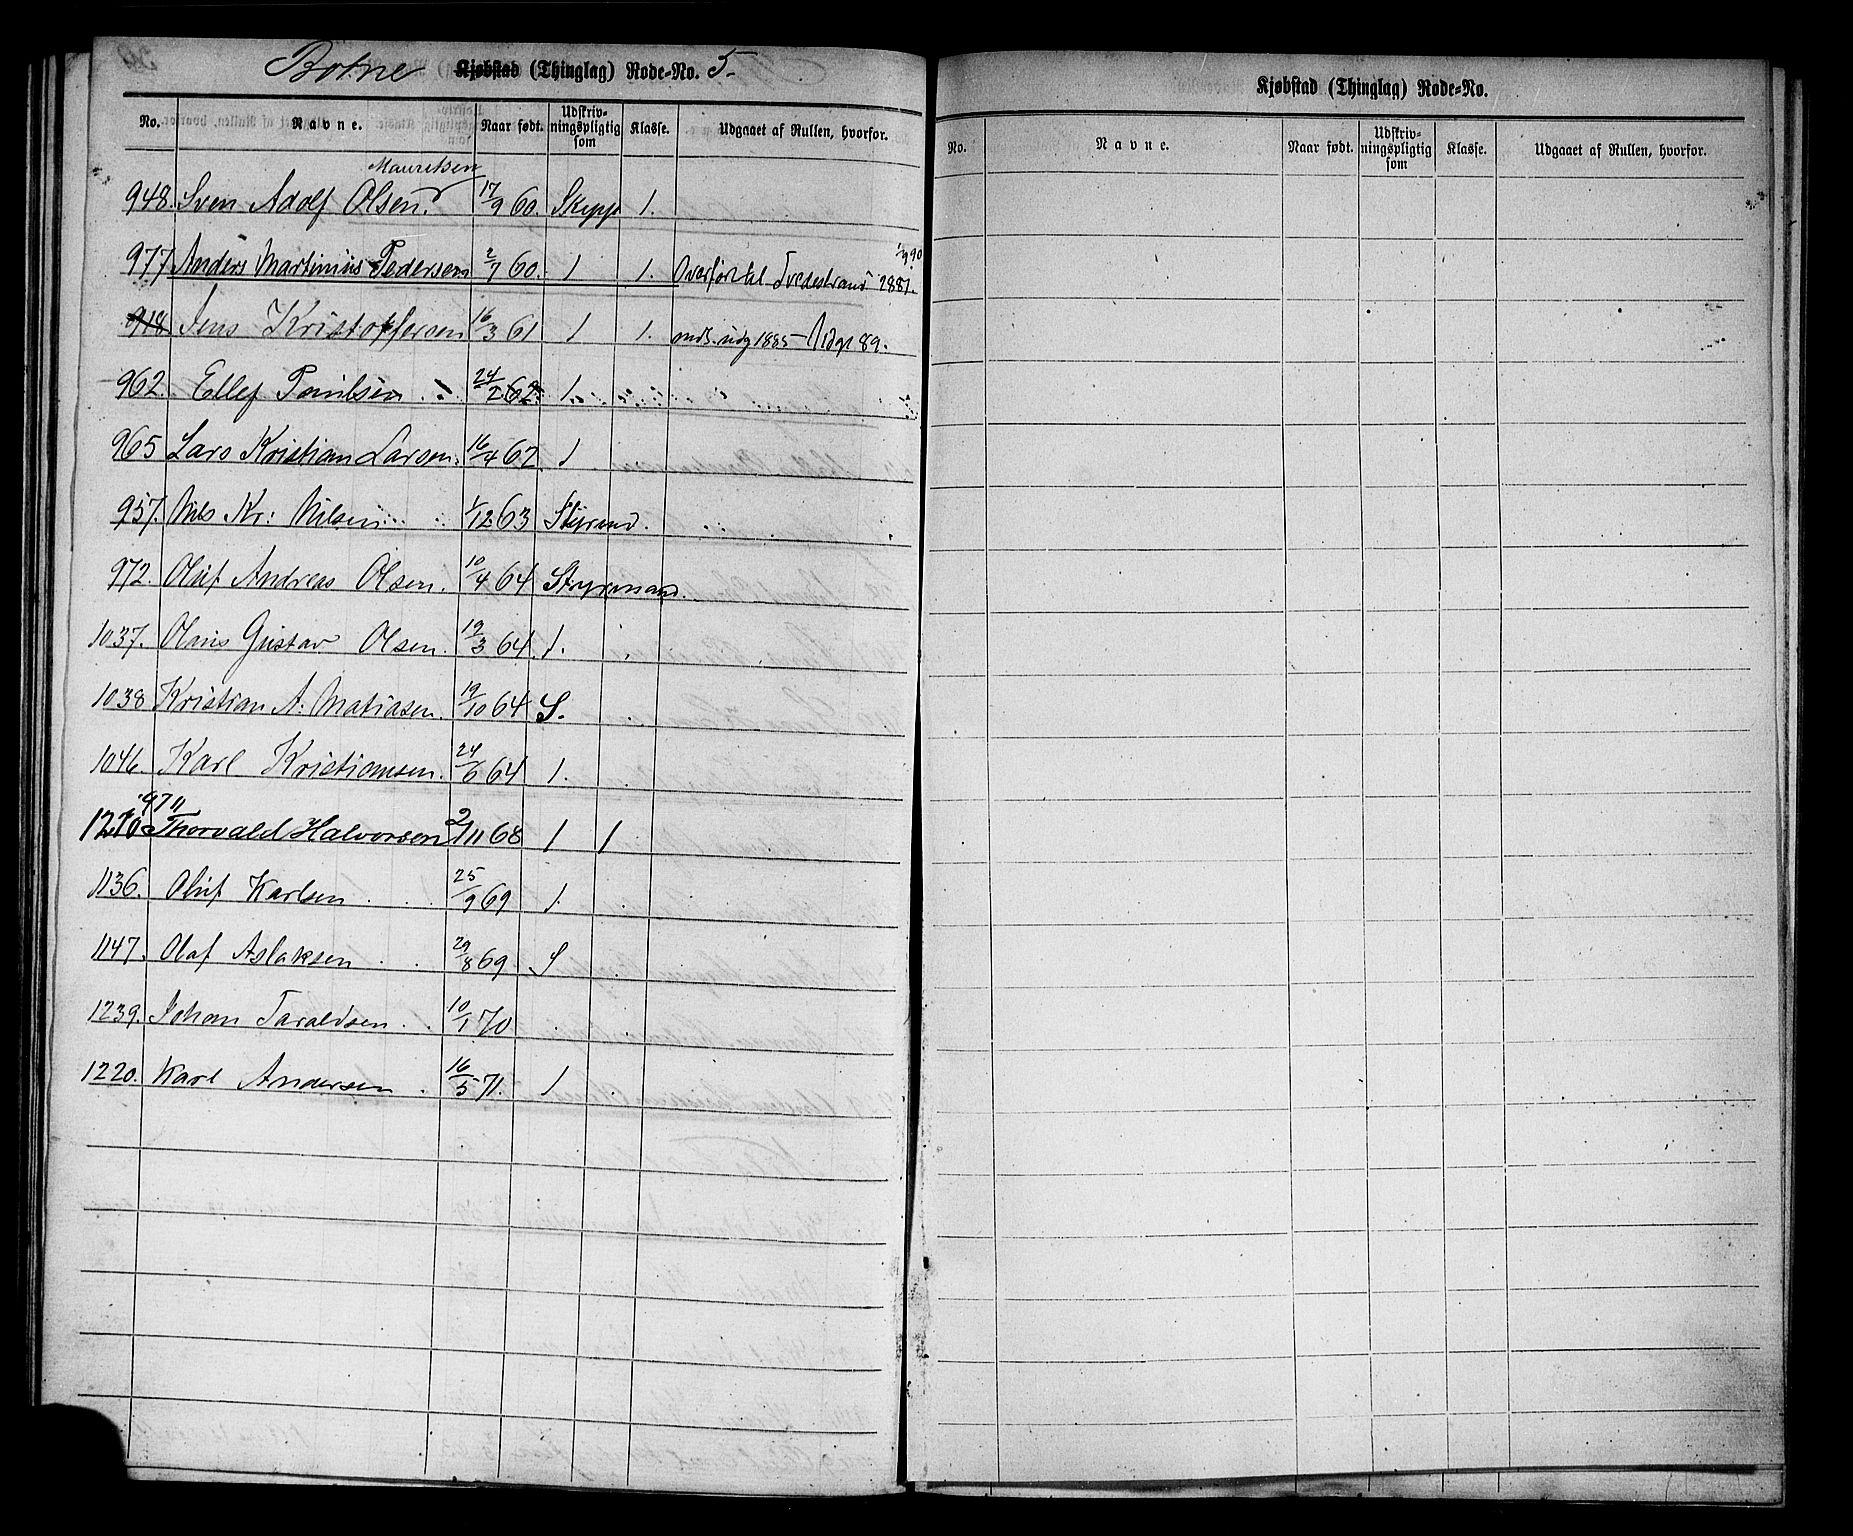 Botne Kjøbstad (Thinglag) Rode-No. 5.
No. Navne. Naar født. Udskriv-ningspligtig som Klasse. Udgaaet af Rullen, hvorfor.
Mauritsen
948. Sven Adolf Olsen 17/9 60. Skipp 1.
977 Anders Martinius Pedersen 2/7 60. 1 1. Overført til Tvedestrand 1881.
918. Jens Kristoffersen 16/3 61 1 1. midl. udg 1885 - Udg. 89.
962. Ellef 24/2 62 1.
965 Lars Kristian Larsen. 16/4 62 1
957. Nils Kr: Nilsen 1/12 63 Styrmd.
972. Oluf Andreas Olsen. 10/4 64 Styrmand.
1037. Olaus Gustav Olsen. 19/3 64 1.
1038 Kristian A. Matiasen. 19/10 64 S.
1046. Karl Kristiansen. 24/6 64 1.
971
1210 Thorvald Halvorsen 2/11 68 1 1
1136. Oluf Karlsen 25/9 69 1.
1147. Olaf Aslaksen 29/8 69 S
1239. Johan Taraldsen 10/1 70
1220. Karl Andersen 16/5 71. 1
Kjøbstad (Thinglag) Rode-No.
No. Navne. Naar født. Udskriv-ningspligtig som Klasse. Udgaaet af Rullen, hvorfor.